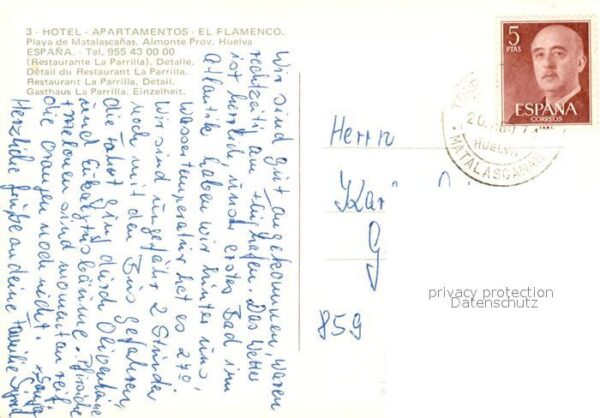 3 - HOTEL - APARTAMENTOS - EL FLAMENCO.
Playa de Matalascañas. Almonte Prov. Huelva
ESPAÑA. - Tel. 955 43 00 00
(Restaurante La Parrilla), Detalle.
Détail du Restaurant La Parrilla.
Restaurant La Parrilla, Detail.
Gasthaus La Parrilla. Einzelheit.
Wir sind gut angekommen, waren
rechtzeitig am Flughafen. Das Wetter
ist herrlich, unser erstes Bad im
Atlantik haben wir hinter uns,
Wassertemperatur hat es 27°
Wir sind ungefähr 2 Stunden
noch mit dem Bus gefahren,
die Fahrt ging durch Olivenhaine
und Eukalyptusbäume. Pfirsiche
+ Melonen sind momentan reif
die Orangen noch nicht.
Herzliche Grüße an deine Familie Sigrid
5
PTAS
ESPAÑA
CORREOS
F.N.M.T.
HUELVA
MATALASCAÑAS
Herrn
Kar
G
859
privacy protection
Datenschutz